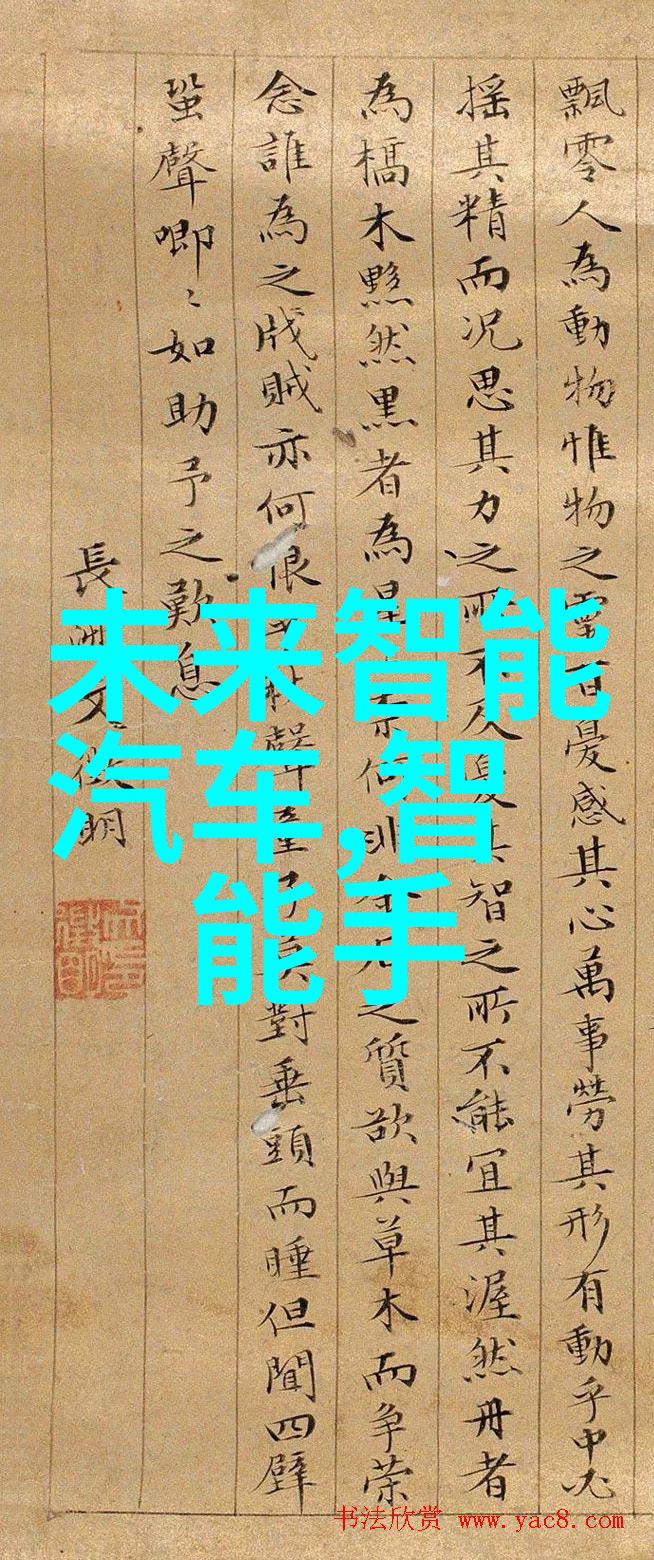 飄零人為動物惟物之靈百憂感其心萬事勞其形有動乎中必
搖其精而況思其力之所不及憂其智之所不能宜其渥然丹者
為槁木黟然黑者為星奈何非金石之質欲與草木而爭榮
念誰為之戕賊亦何恨乎秋聲童子莫對垂頭而睡但聞四壁
蛩聲唧〻如助予之歎息
長洲文徵明
未来智能
汽车,智
能手
书法欣赏 www.yac8.com